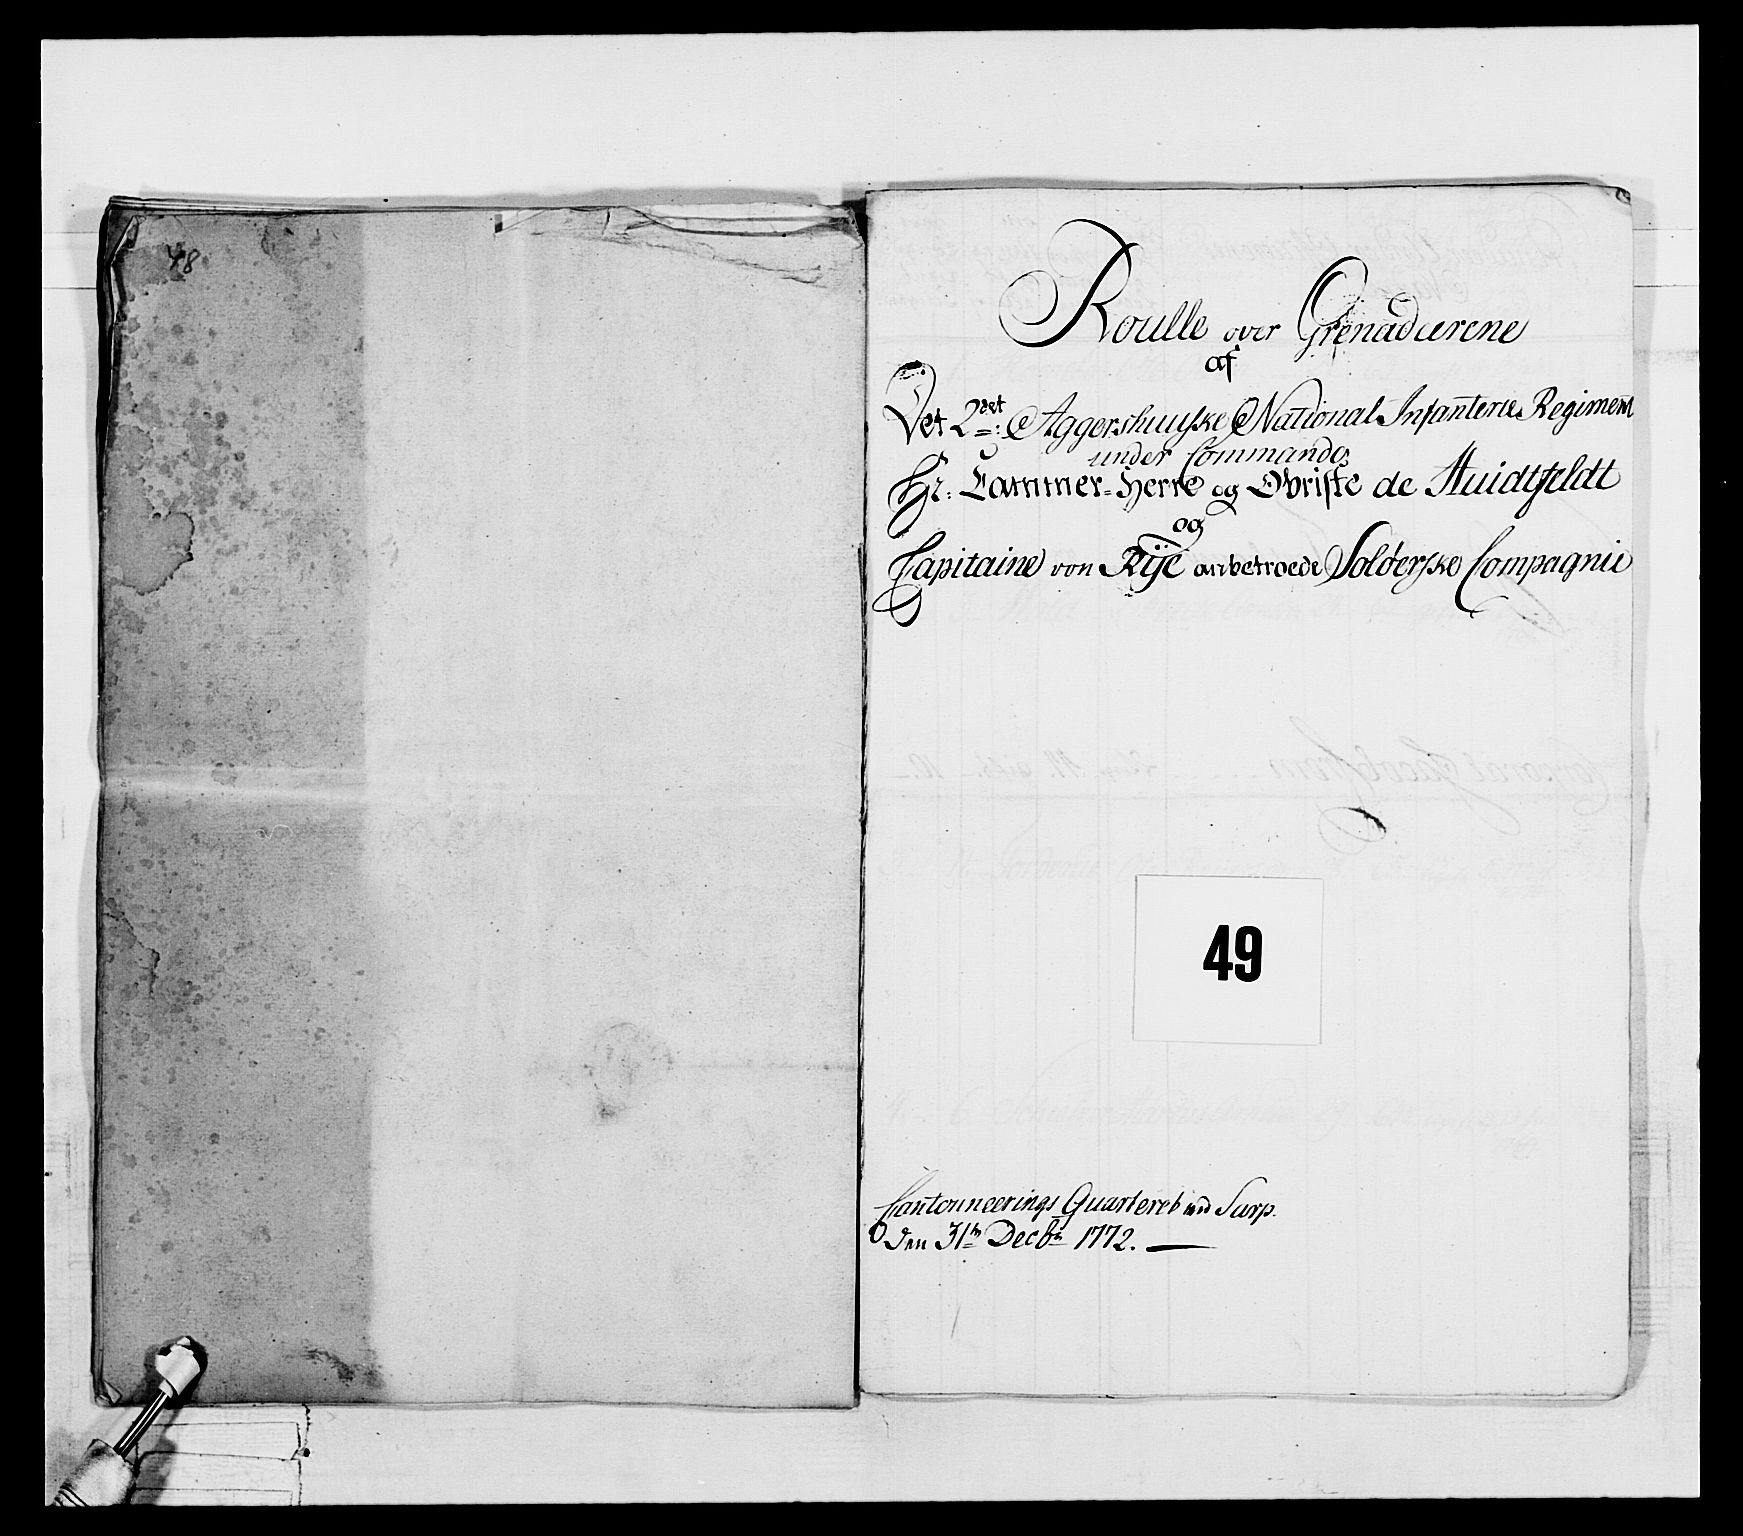 48
Roulle over Grenadierene
af
Det 2det Aggershuuske National Infanterie Regiment
under Commando
Hr: Cammer-Herre og Obriste de Huidtfeldt
og
Capitaine von Rÿe anbetroede Solörske Compagnie
49
Cantonneerings Quarteret ved Sarp.
Den 31te Decbr 1772.